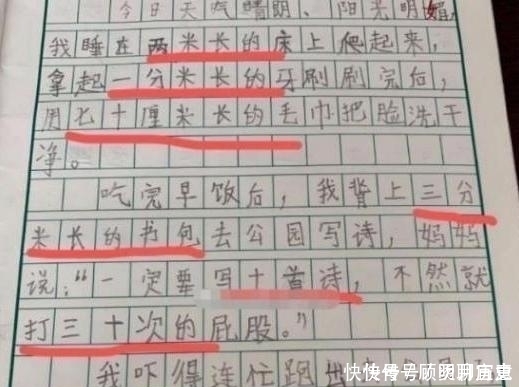 今日天气晴朗、阳光明媚,
我睡在两米长的床上爬起来,
拿起一分米长的牙刷刷完后,
用七十厘米长的毛巾把脸洗干
净。
吃完早饭后,我背上三分
米长的书包去公园写诗,妈妈
说:“一定要写十首诗,不然就
打三十次的屁股。”
我吓得连忙跑出